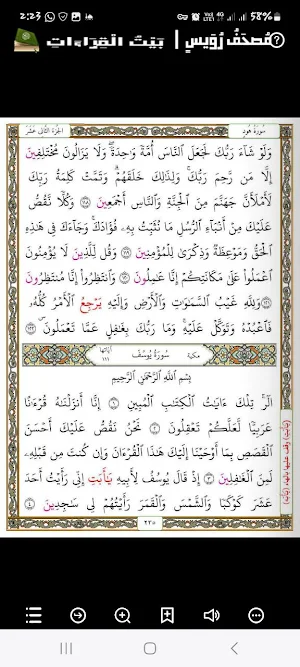 2:23 58%
مصحف رويس | بيت القراءات
سورة هود الجزء الثاني عشر
وَلَوۡ شَآءَ رَبُّكَ لَجَعَلَ ٱلنَّاسَ أُمَّةٗ وَٰحِدَةٗۖ وَلَا يَزَالُونَ مُخۡتَلِفِينَ
إِلَّا مَن رَّحِمَ رَبُّكَۚ وَلِذَٰلِكَ خَلَقَهُمۡۗ وَتَمَّتۡ كَلِمَةُ رَبِّكَ
لَأَمۡلَأَنَّ جَهَنَّمَ مِنَ ٱلۡجِنَّةِ وَٱلنَّاسِ أَجۡمَعِينَ وَكُلّٗا نَّقُصُّ
عَلَيۡكَ مِنۡ أَنۢبَآءِ ٱلرُّسُلِ مَا نُثَبِّتُ بِهِۦ فُؤَادَكَۚ وَجَآءَكَ فِي هَٰذِهِ
ٱلۡحَقُّ وَمَوۡعِظَةٞ وَذِكۡرَىٰ لِلۡمُؤۡمِنِينَ وَقُل لِّلَّذِينَ لَا يُؤۡمِنُونَ
ٱعۡمَلُواْ عَلَىٰ مَكَانَتِكُمۡ إِنَّا عَٰمِلُونَ وَٱنتَظِرُوٓاْ إِنَّا مُنتَظِرُونَ
وَلِلَّهِ غَيۡبُ ٱلسَّمَٰوَٰتِ وَٱلۡأَرۡضِ وَإِلَيۡهِ يَرۡجِعُ ٱلۡأَمۡرُ كُلُّهُۥ
فَٱعۡبُدۡهُ وَتَوَكَّلۡ عَلَيۡهِۚ وَمَا رَبُّكَ بِغَٰفِلٍ عَمَّا تَعۡمَلُونَ
مكية سورة يوسف آياتها ١١١
بِسۡمِ ٱللَّهِ ٱلرَّحۡمَٰنِ ٱلرَّحِيمِ
الٓرۚ تِلۡكَ ءَايَٰتُ ٱلۡكِتَٰبِ ٱلۡمُبِينِ ١ إِنَّآ أَنزَلۡنَٰهُ قُرۡءَٰنًا
عَرَبِيّٗا لَّعَلَّكُمۡ تَعۡقِلُونَ ٢ نَحۡنُ نَقُصُّ عَلَيۡكَ أَحۡسَنَ
ٱلۡقَصَصِ بِمَآ أَوۡحَيۡنَآ إِلَيۡكَ هَٰذَا ٱلۡقُرۡءَانَ وَإِن كُنتَ مِن قَبۡلِهِۦ
لَمِنَ ٱلۡغَٰفِلِينَ ٣ إِذۡ قَالَ يُوسُفُ لِأَبِيهِ يَٰٓأَبَتِ إِنِّي رَأَيۡتُ أَحَدَ
عَشَرَ كَوۡكَبٗا وَٱلشَّمۡسَ وَٱلۡقَمَرَ رَأَيۡتُهُمۡ لِي سَٰجِدِينَ ٤
(يَٰٓأَبَتِ) وقف عليها بالهاء (يأبه)
٢٣٥